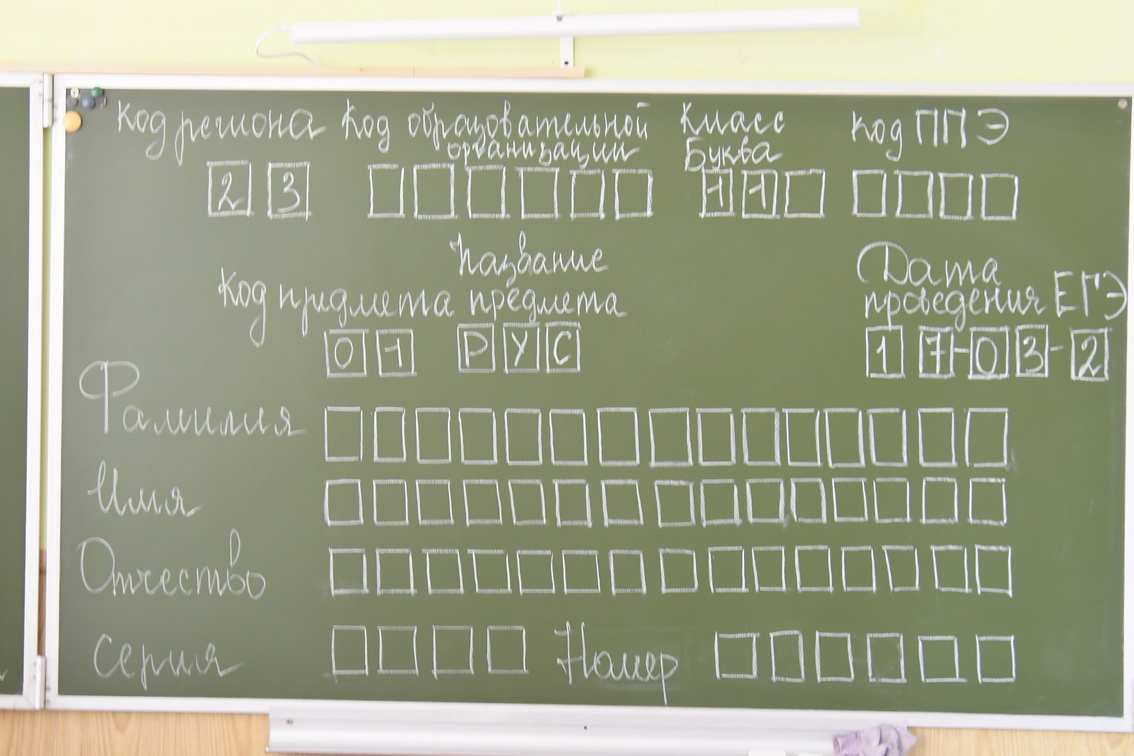 Код региона Код образовательной Класс Код ППЭ
организации Буква
2 3 1 1
Название Дата
Код придмета предмета проведения ЕГЭ
0 1 Р У С 1 7-0 3-2
Фамилия
Имя
Отчество
Серия Намер